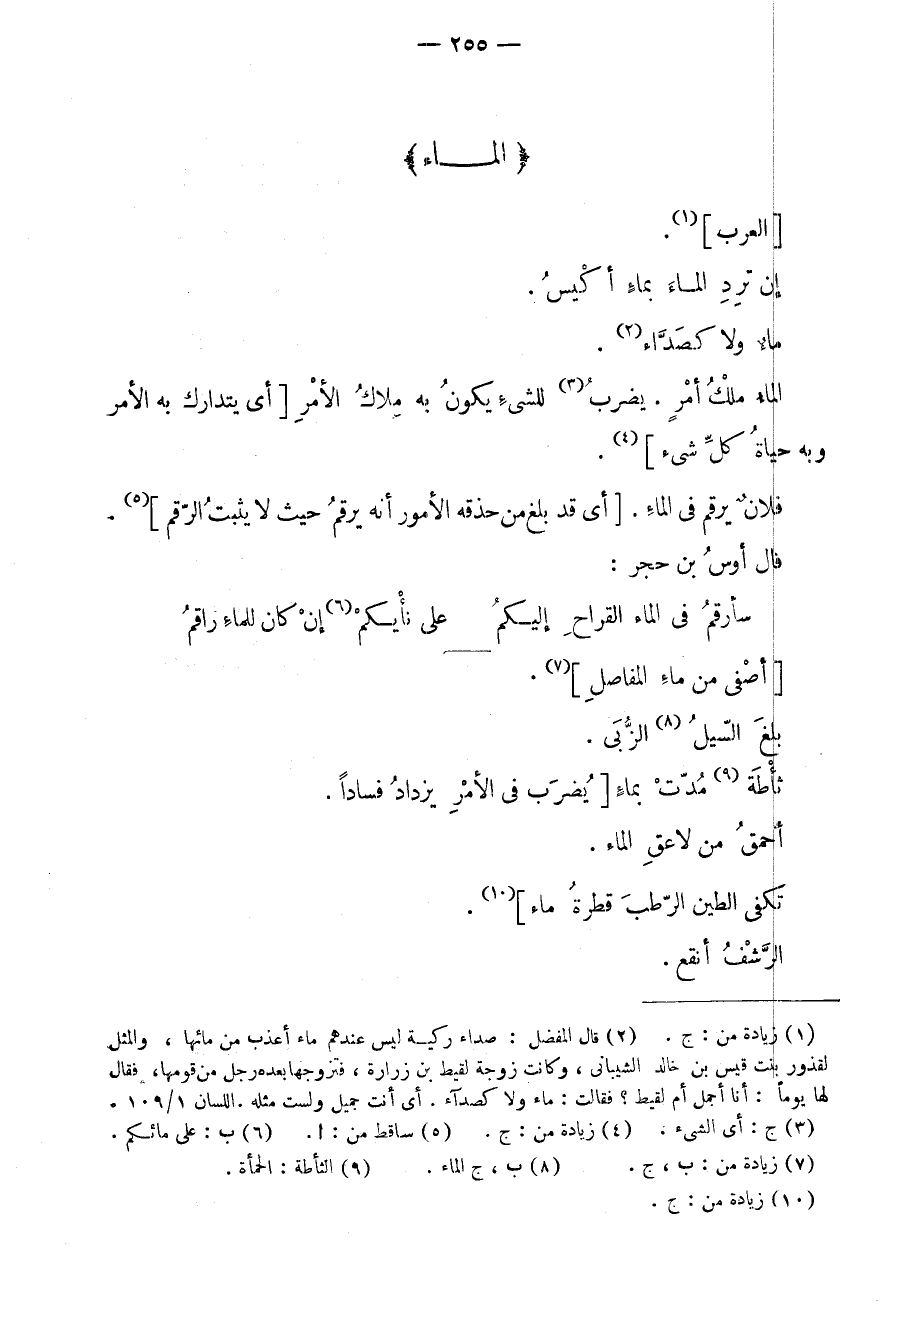 — ٢٥٥ —
﴿ المـــاء ﴾
[ العرب ](١) .
إن تَرِدِ المـاءَ بماءٍ أكْيسُ .
ماء ولا كصَدَّاء(٢) .
الماء ملْكُ أمْرٍ . يضربُ(٣) للشىءِ يكونُ به مِلاكُ الأمْرِ [ أى يتدارك به الأمر
وبه حياةُ كلِّ شىء ](٤) .
فلانٌ يرقم فى الماءِ . [ أى قد بلغ من حذقه الأمور أنه يرقمُ حيث لا يثبتُ الرّقم ](٥) .
قال أوسُ بن حجر :
سأرقمُ فى الماء القراحِ إليـكمُ على نأْيـكمْ(٦) إنْ كان للماءِ راقمُ
[ أصْفى من ماءِ المفاصلِ ](٧) .
بلغَ السّيلُ(٨) الزُّبَى .
ثأْطَة(٩) مُدّتْ بماءٍ [ يُضرَب فى الأمْرِ يزدادُ فساداً .
أحمقُ من لاعقِ الماء .
تكفى الطين الرّطبَ قطرةُ ماء ](١٠) .
الرَّشْفُ أنقع .
(١) زيادة من : ج . (٢) قال المفضل : صداء ركيـة ليس عندهم ماء أعذب من مائها ، والمثل
لقذور بنت قيس بن خالد الشيبانى ، وكانت زوجة لقيط بن زرارة ، فتزوجها بعده رجل من قومها ، فقال
لها يوماً : أنا أجمل أم لقيط ؟ فقالت : ماء ولا كصدآء . أى أنت جميل ولست مثله . اللسان ١/١٠٩ .
(٣) ج : أى الشىء . (٤) زيادة من : ج . (٥) ساقط من : ا . (٦) ب : على مائكم .
(٧) زيادة من : ب ، ج . (٨) ب ، ج الماء . (٩) الثأطة : الحمأة .
(١٠) زيادة من : ج .